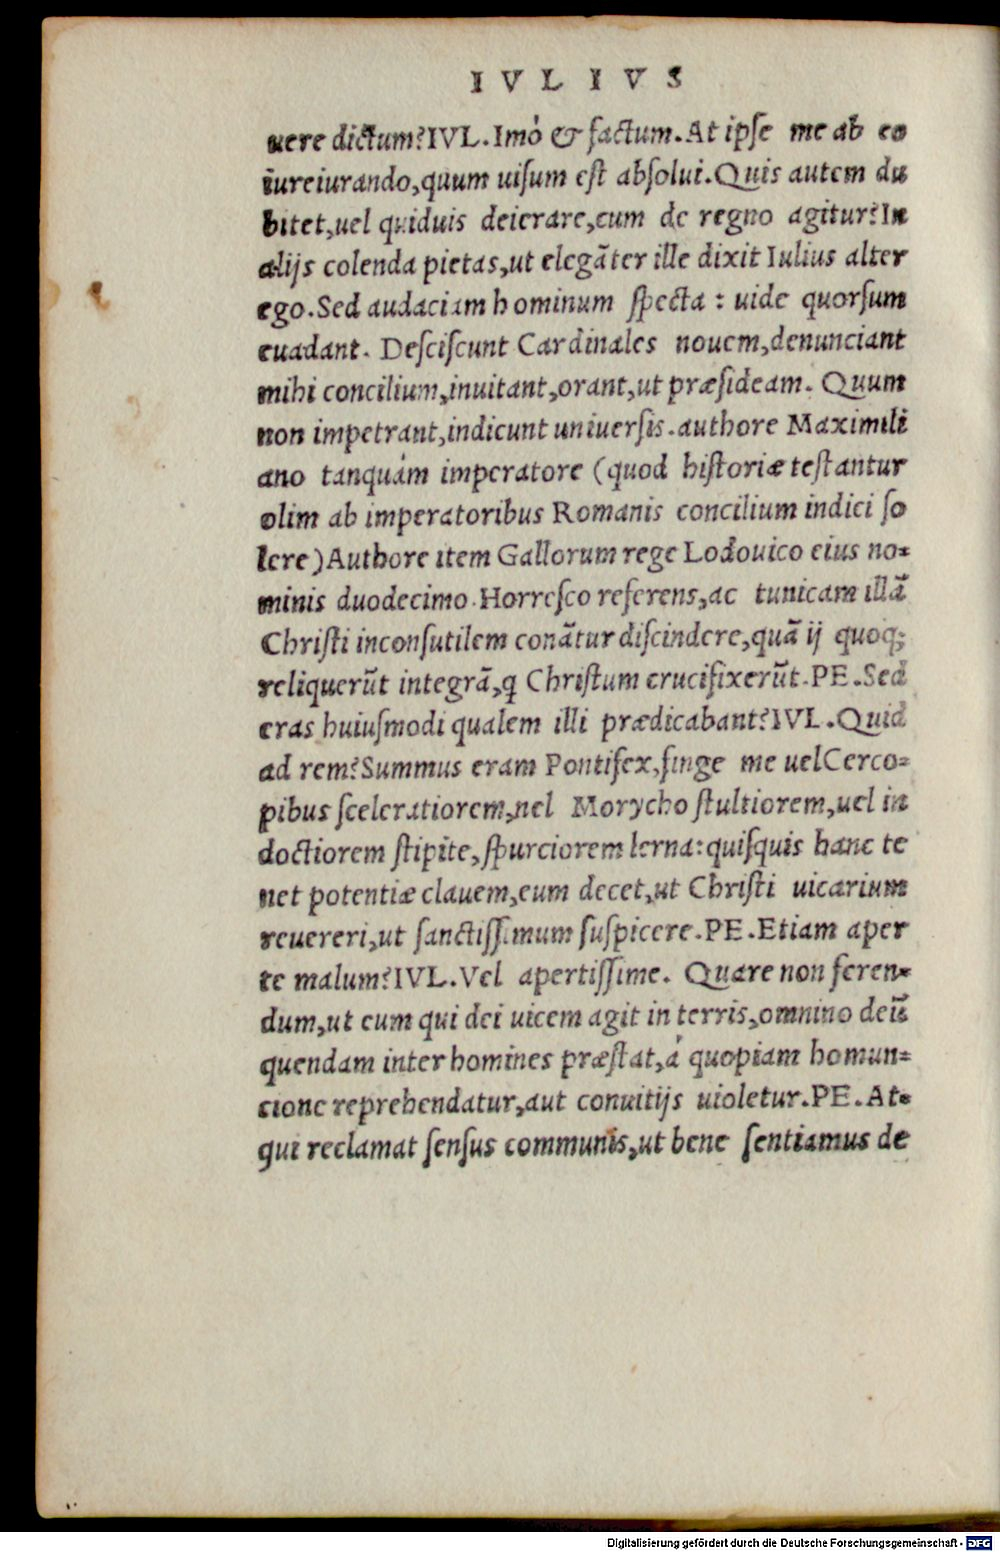 IVLIVS
uere dictum? IVL. Imò & factum. At ipse me ab eo
iureiurando, quum uisum est absolui. Quis autem du
bitet, uel quiduis deierare, cum de regno agitur? In
alijs colenda pietas, ut elegāter ille dixit Iulius alter
ego. Sed audaciam hominum specta : uide quorsum
euadant. Desciscunt Cardinales nouem, denunciant
mihi concilium, inuitant, orant, ut præsideam. Quum
non impetrant, indicunt uniuersis. authore Maximili
ano tanquàm imperatore (quod historiæ testantur
olim ab imperatoribus Romanis concilium indici so
lere) Authore item Gallorum rege Lodouico eius no=
minis duodecimo. Horresco referens, ac tunicam illā
Christi inconsutilem conātur discindere, quā ij quoq;
reliquerūt integrā, q Christum crucifixerūt. PE. Sed
eras huiusmodi qualem illi prædicabant? IVL. Quid
ad rem? Summus eram Pontifex, finge me uel Cerco=
pibus sceleratiorem, nel Morycho stultiorem, uel in
doctiorem stipite, spurciorem lerna: quisquis hanc te
net potentiæ clauem, eum decet, ut Christi uicarium
reuereri, ut sanctissimum suspicere. PE. Etiam aper
te malum? IVL. Vel apertissime. Quare non feren=
dum, ut eum qui dei uicem agit in terris, omnino deū
quendam inter homines præstat, à quopiam homun=
cione reprehendatur, aut conuitijs uioletur. PE. At=
qui reclamat sensus communis, ut bene sentiamus de
Digitalisierung gefördert durch die Deutsche Forschungsgemeinschaft - DFG